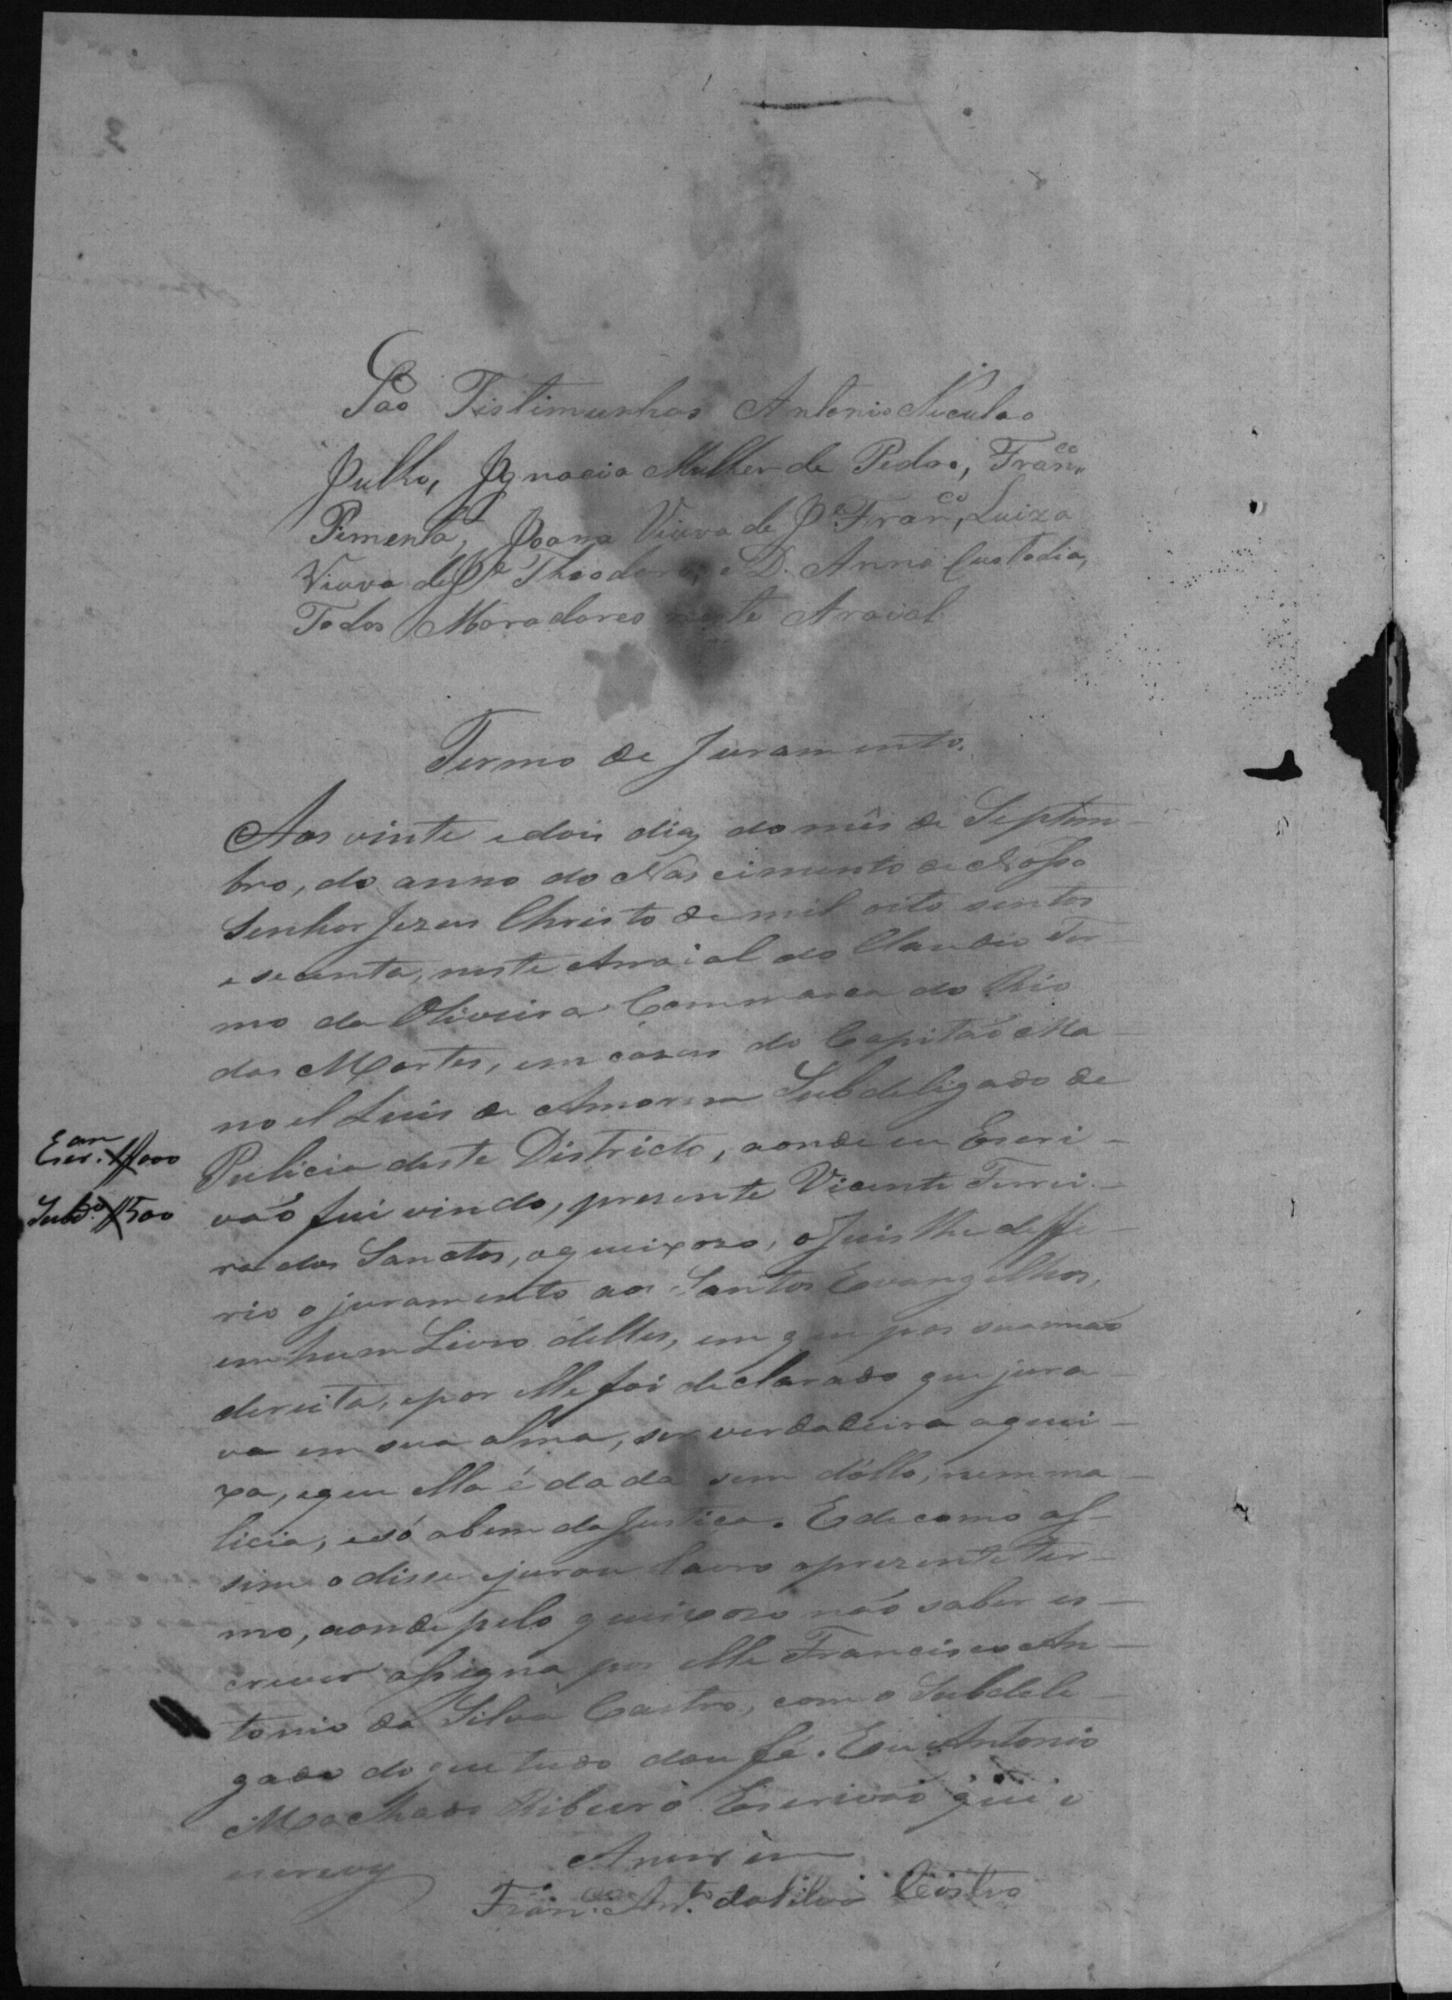 São Tistimunhas Antonio Niculao
Julho, Ignacia Mulher de Pedro, Fran.co
Pimenta, Joana Viuva de J.e Fran.co, Luiza
Viuva de J.e Theodoro, e D. Anna Custodia,
Todos Moradores neste Arraial
Termo de Juramento.
Aos vinte e dois dias do mês de Septem-
bro, do anno do Nascimento de Nosso
Senhor Jezus Christo de mil oito sentos
e secenta, neste Arraial do Claudio Ter-
mo da Oliveira Commarca do Rio
das Mortes, em cazas do Capitão Ma-
noel Luis de Amorim Subdeligado de
Pulicia deste Districto, aonde eu Escri-
vaõ fui vindo, presente Vicente Ferrei-
ra dos Sanctos, o queixozo, o Juis lhe deffe-
rio o juramento aos Santos Evangelhos,
em hum Livro delles, em que pos sua maõ
dereita, e por elle foi declarado que jura-
va em sua alma, ser verdadeira a quei-
xa, e que ella é dada sem dóllo, nem ma-
licia, e só a bem da Justica. E de como as-
sim o disse e jurou lavro o prezente ter-
mo, aonde pelo queixozo não saber es-
crever assigna por elle Francisco An-
tonio da Silva Castro, com o Subdele-
gado do que tudo dou fé. Eu Antonio
Machado Ribeiro Escrivaõ que o
escrevy
Amorim
Fran.co An.to da Silva Castro
Escr. 1$000
Subd.o $500